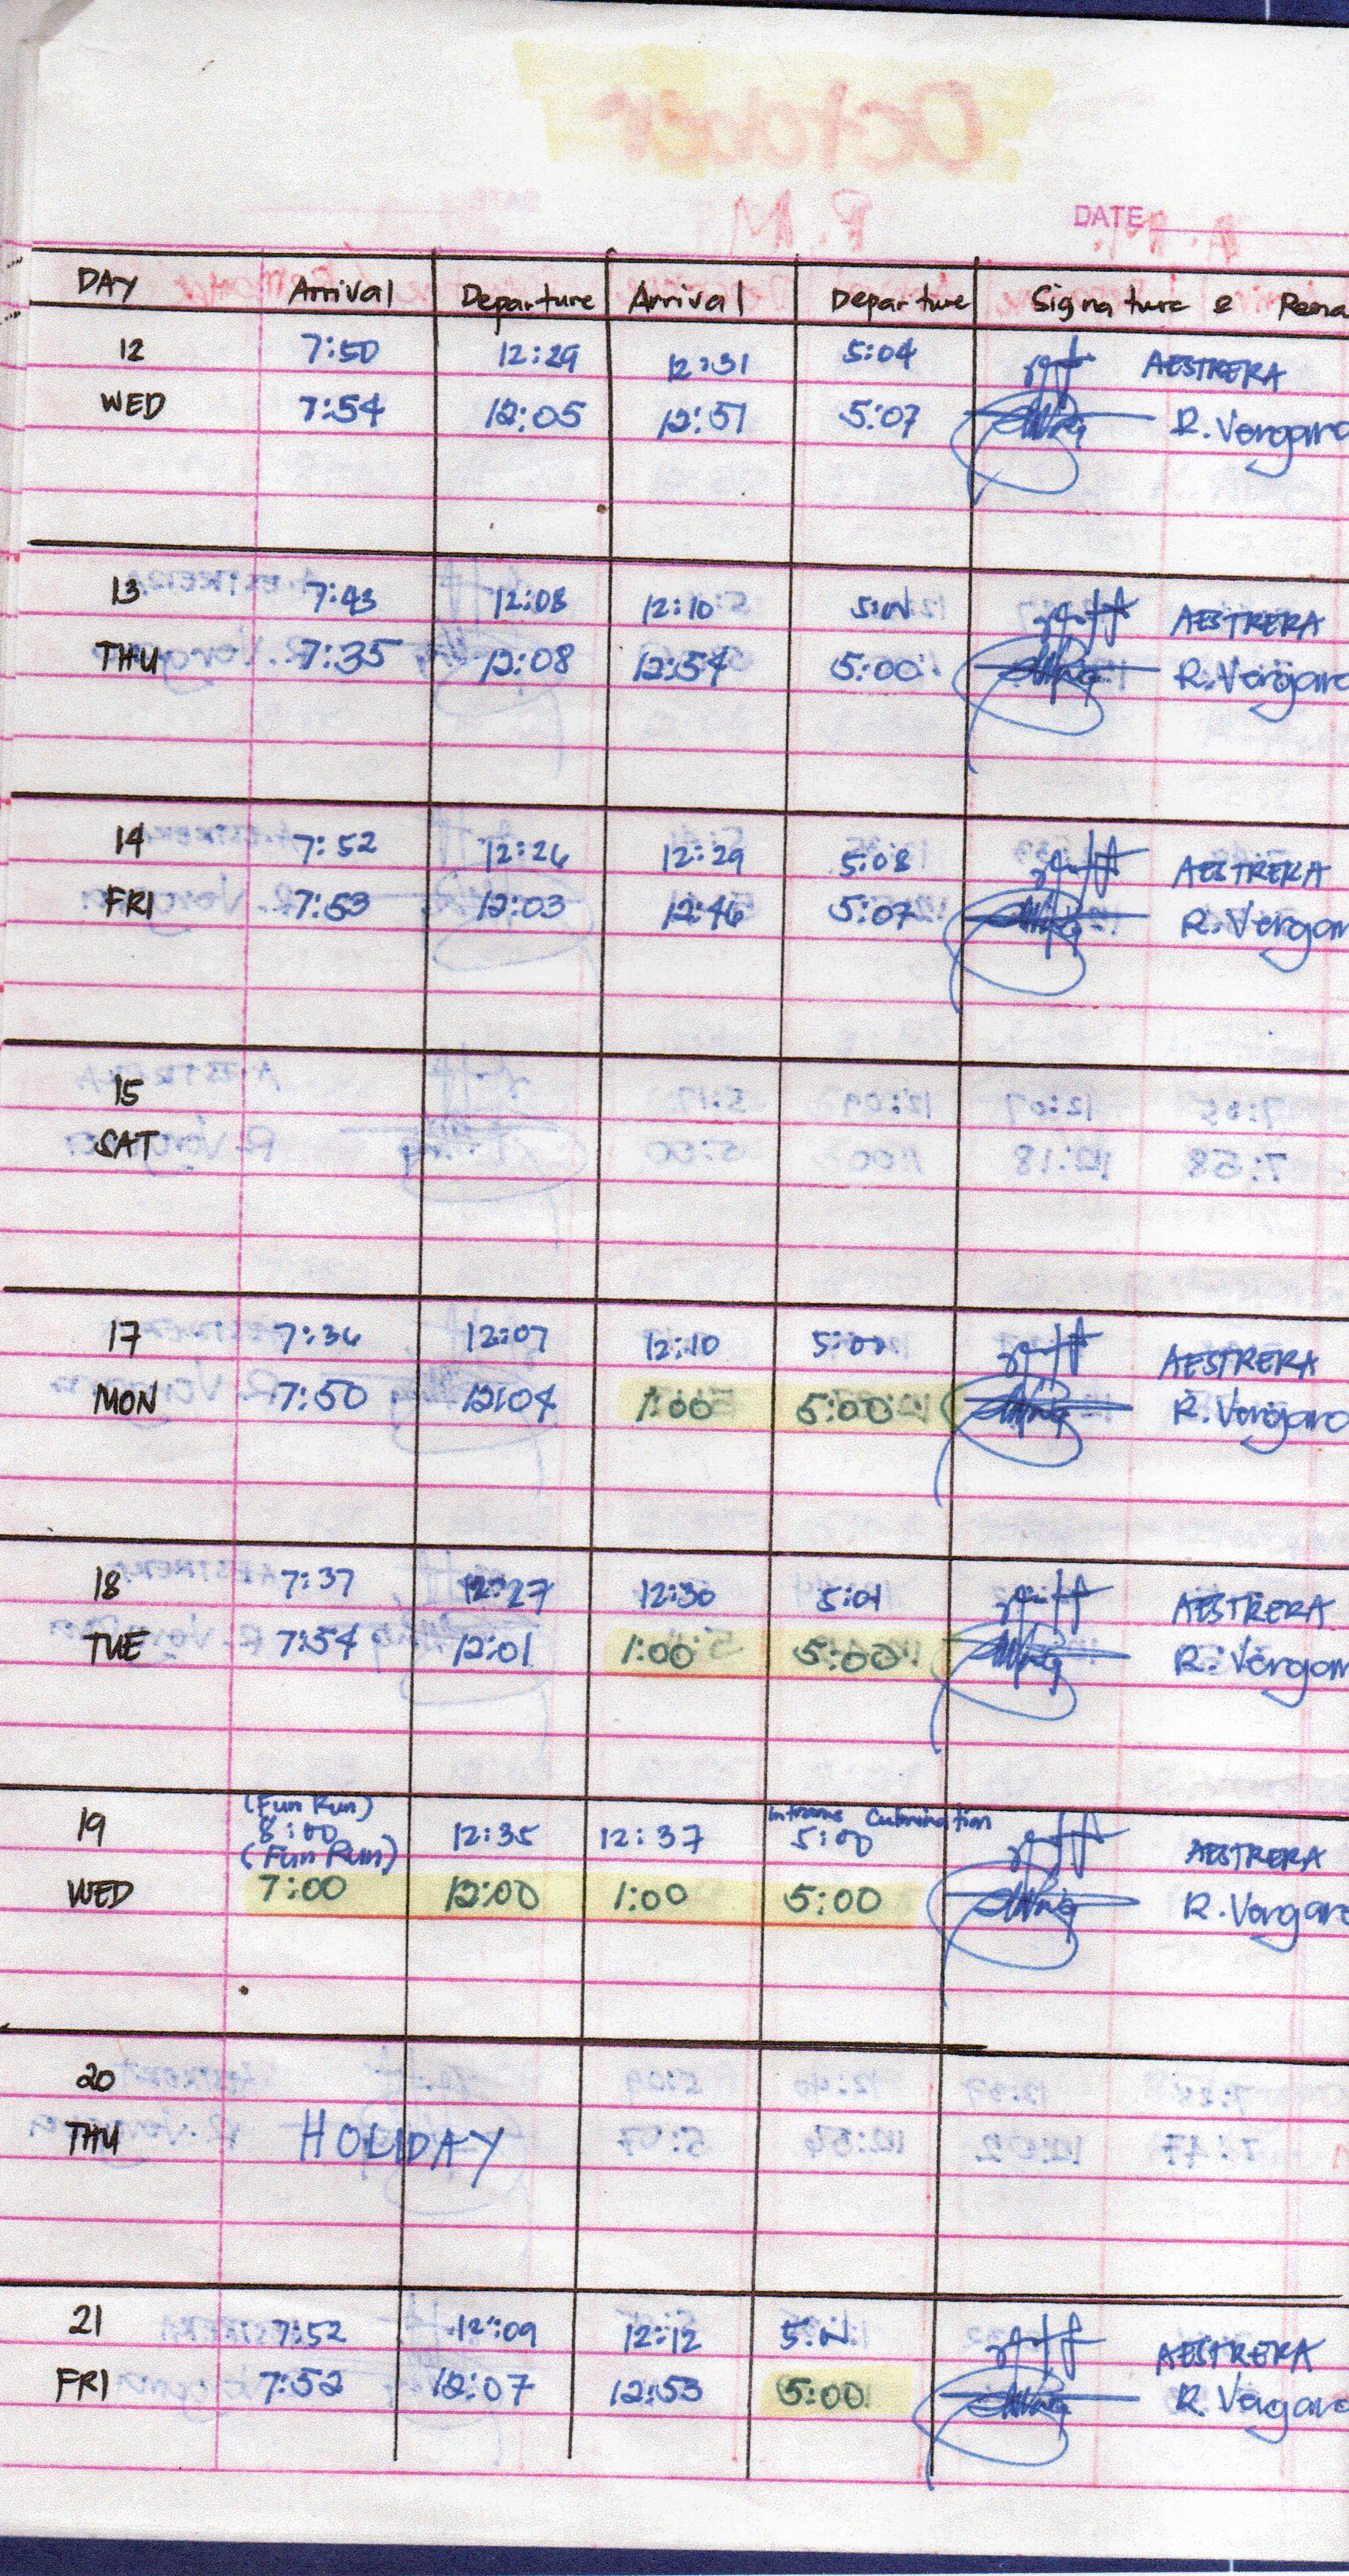 DATE
DAY Arrival Departure Arrival Departure Signature & Rema
12 7:50 12:29 12:31 5:04 AESTRERA
WED 7:54 12:05 12:51 5:07 R. Vergara
13 7:43 12:08 12:10 AESTRERA
THU 7:35 12:08 12:54 5:00 R. Vergara
14 7:52 12:26 12:29 5:08 AESTRERA
FRI 7:53 12:03 12:46 5:07 R. Vergar
15
SAT
17 7:36 12:07 12:10 5:00 AESTRERA
MON 7:50 12:04 1:00 5:00 R. Vergara
18 7:37 12:27 12:30 5:01 AESTRERA
TUE 7:54 12:01 1:00 5:00 R. Vergar
(Fun Run) Intrams Culmination
19 8:00 12:35 12:37 5:00 AESTRERA
(Fun Run)
WED 7:00 12:00 1:00 5:00 R. Vergara
20
THU HOLIDAY
21 7:52 12:09 12:12 AESTRERA
FRI 7:52 12:07 12:53 5:00 R. Vergara